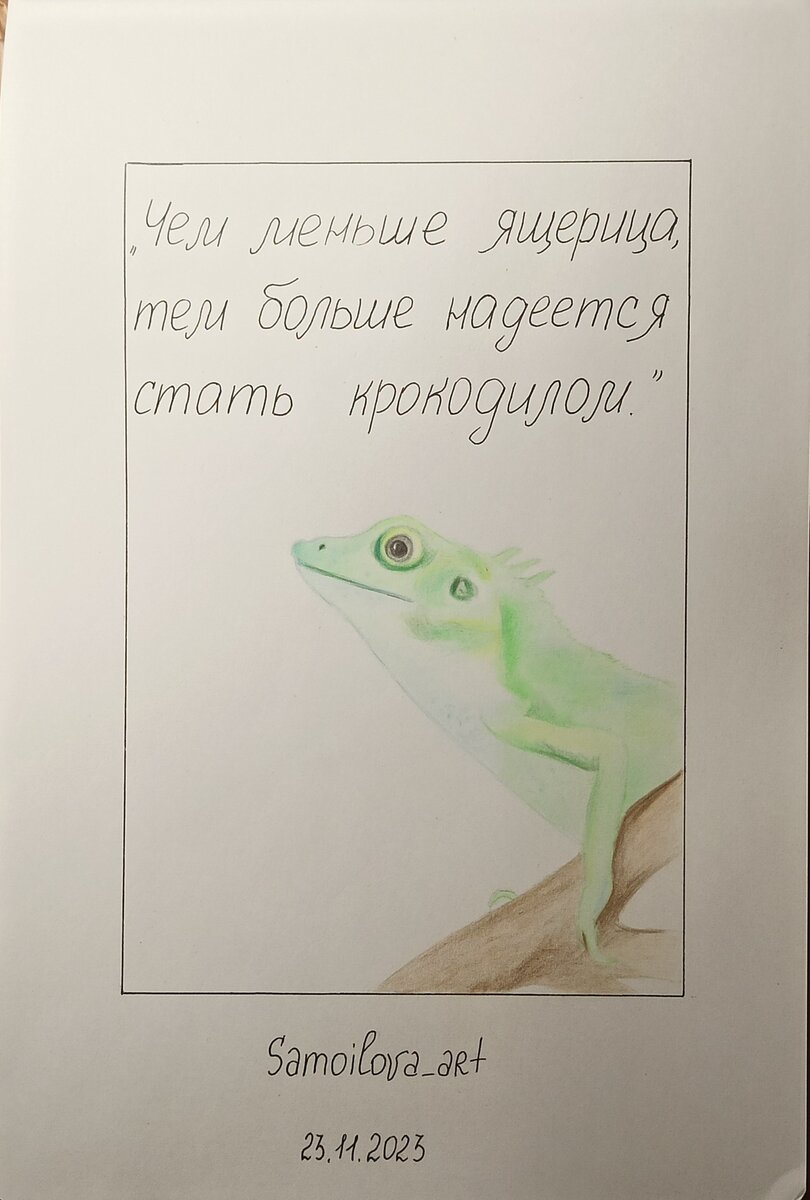 „Чем меньше ящерица,
тем больше надеется
стать крокодилом.”
Samoilova_art
23.11.2023